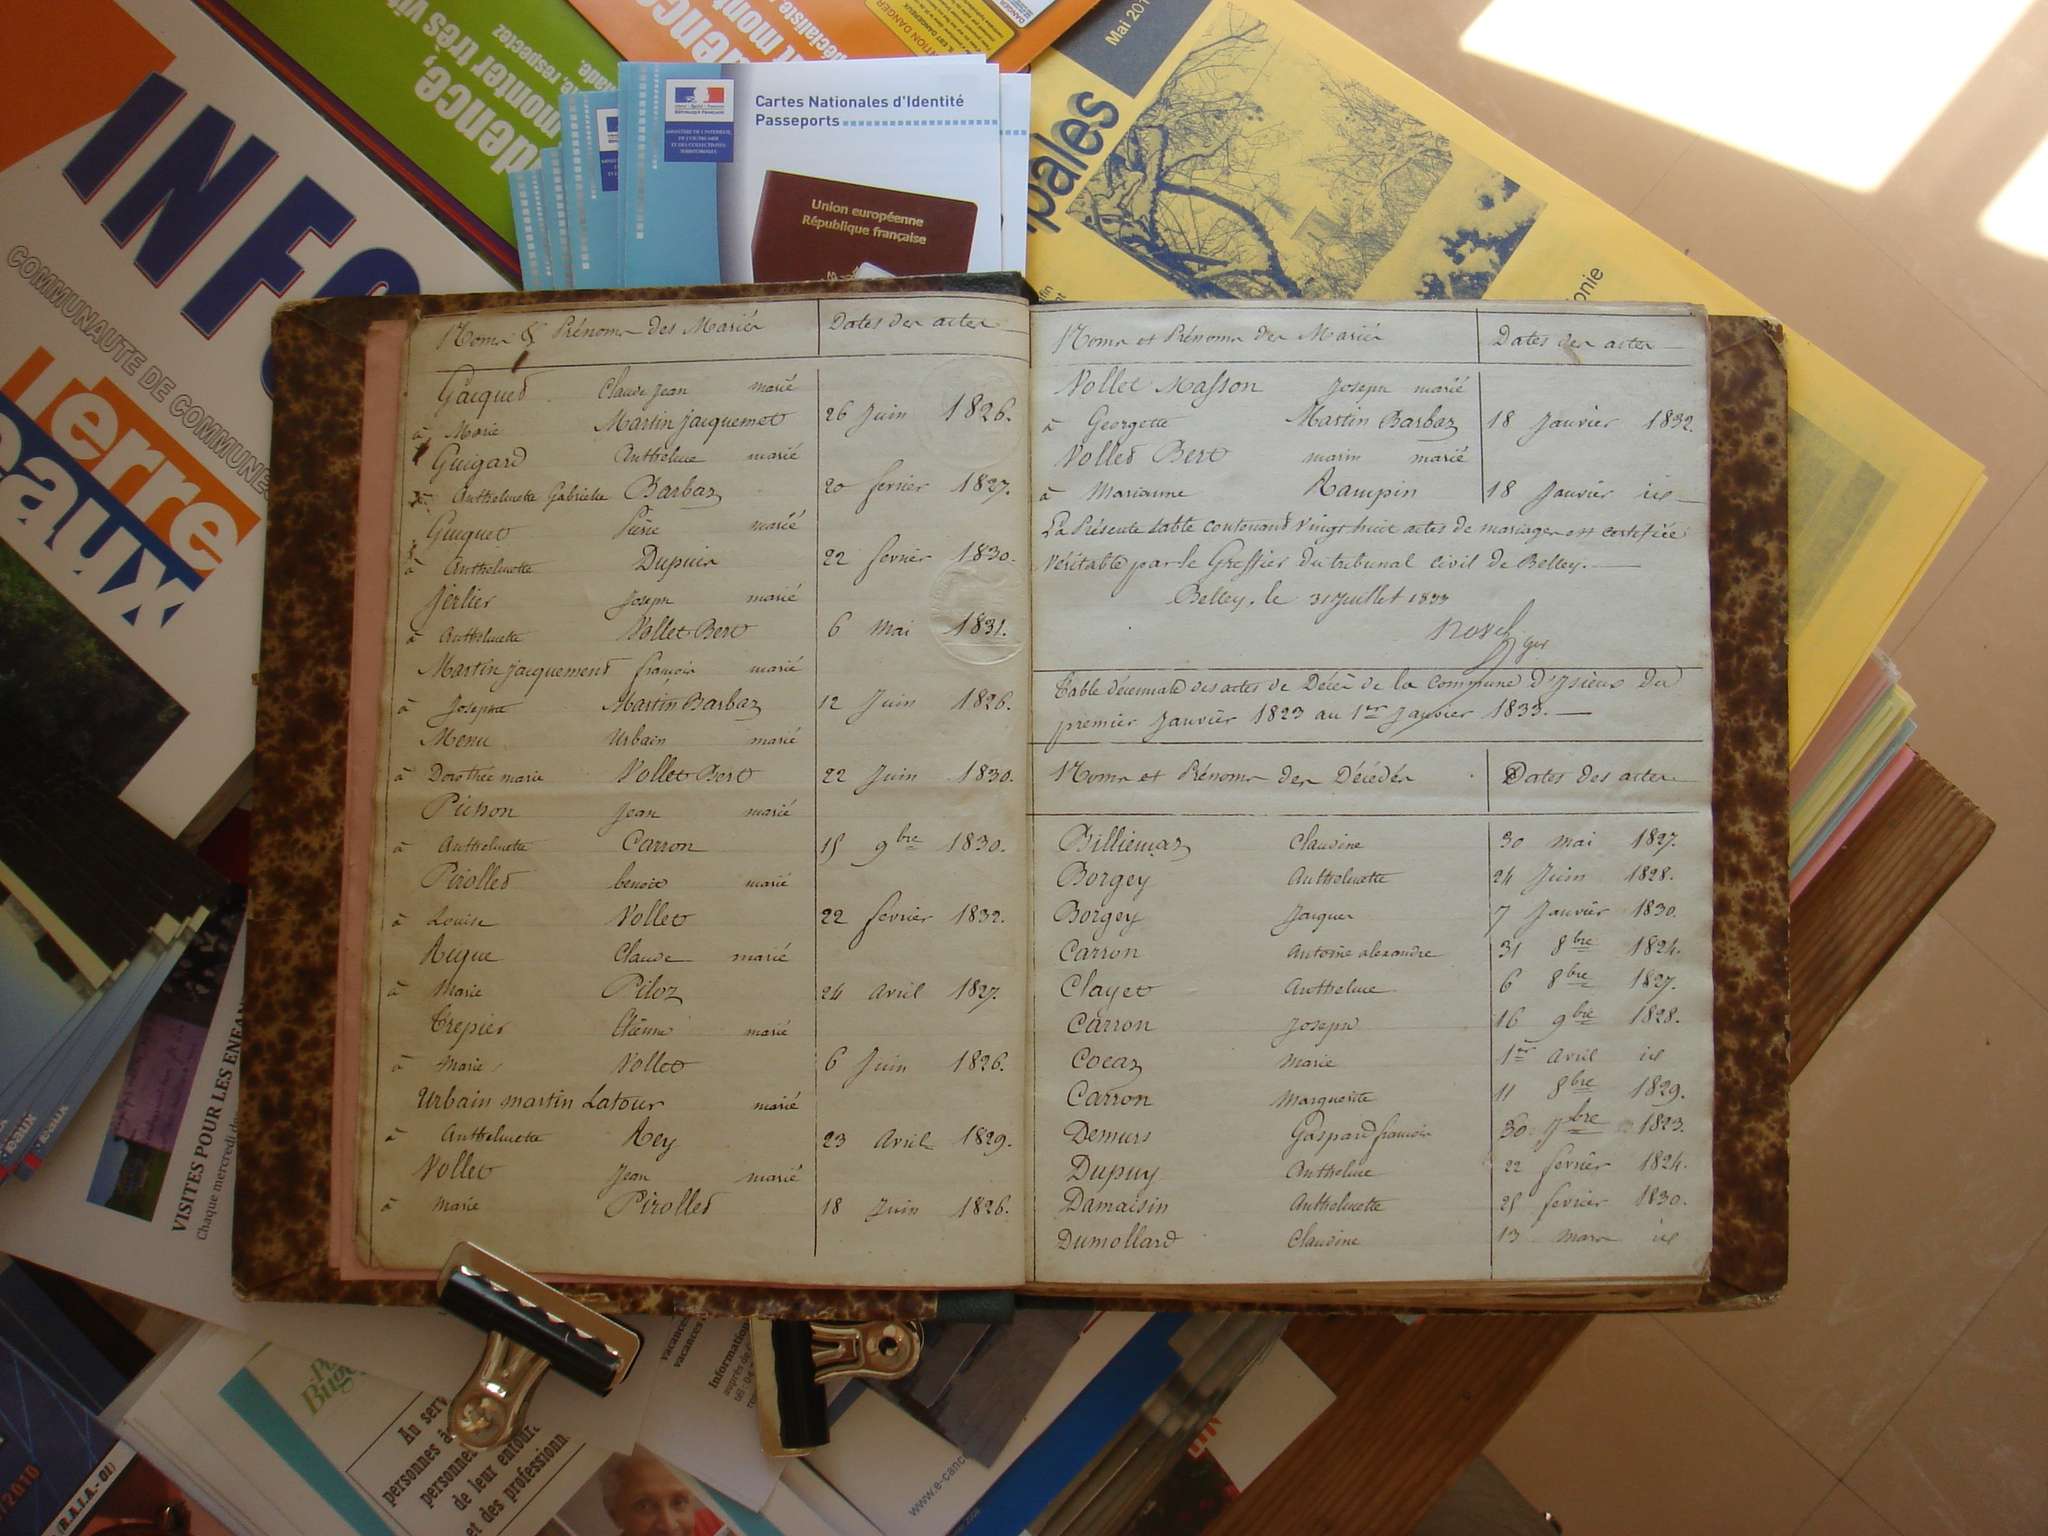 INFO
COMMUNAUTÉ DE COMMUNES
Terre
eaux
dence,
monter très vite
respectez
ATTENTION DANGER
Cartes Nationales d'Identité
Passeports
Union européenne
République française
Mai 201
ipales
onie
Noms & Prénoms des Mariés Dates des actes
Gacqued Claude Jean marié
à Marie Martin Jacquemet 26 Juin 1826.
Guigard Anthelme marié
à Anthelmette Gabrielle Barbaz 20 fevrier 1827.
Guiguet Pierre marié
à Anthelmette Dupuis 22 fevrier 1830.
Jerlier Joseph marié
à Anthelmette Vollet Bert 6 Mai 1831.
Martin Jacquemend françois marié
à Josephte Martin Barbaz 12 Juin 1826.
Menu Urbain marié
à Dorothée marie Vollet Bert 22 Juin 1830.
Pichon Jean marié
à Anthelmette Carron 15 9bre 1830.
Pirolled benoit marié
à Louise Vollet 22 fevrier 1832.
Reque Claude marié
à Marie Piloz 24 Avril 1827.
Trepier Etienne marié
à Marie Vollet 6 Juin 1826.
Urbain martin Latour marié
à Anthelmette Rey 23 Avril 1829.
Vollet Jean marié
à Marie Pirolled 18 Juin 1826.
Noms et Prénoms des Mariés Dates des actes
Vollet Masson Joseph marié
à Georgette Martin Barbaz 18 Janvier 1832.
Volled Bert marin marié
à Marianne Rampin 18 Janvier id
La Présente table contenant Vingt huit actes de mariage est certifiée
Véritable par le Greffier du tribunal civil de Belley.
Belley, le 31 Juillet 1833
Novel
ger
Table décennale des actes de Décès de la commune d'Isieux du
premier Janvier 1823 au 1er Janvier 1833.
Noms et Prénoms des Décédés Dates des actes
Billiemaz Claudine 30 mai 1827.
Borgey Anthelmette 24 Juin 1828.
Borgey Jacques 7 Janvier 1830.
Carron Antoine alexandre 31 8bre 1824.
Clayet Anthelme 6 8bre 1827.
Carron Joseph 16 9bre 1828.
Cocaz Marie 1er Avril id
Carron Marguerite 11 8bre 1829.
Demurs Gaspard françois 30 7bre 1823.
Dupuy Anthelme 22 fevrier 1824.
Damaisin Anthelmette 25 fevrier 1830.
Dumollard Claudine 13 mars id
VISITES POUR LES ENFAN
Chaque mercredi d
Au serv
personnes â
personnes
de leur entour
et des professionn
Information
www.e-canc
/2010
(R.A.I.A.- 01)